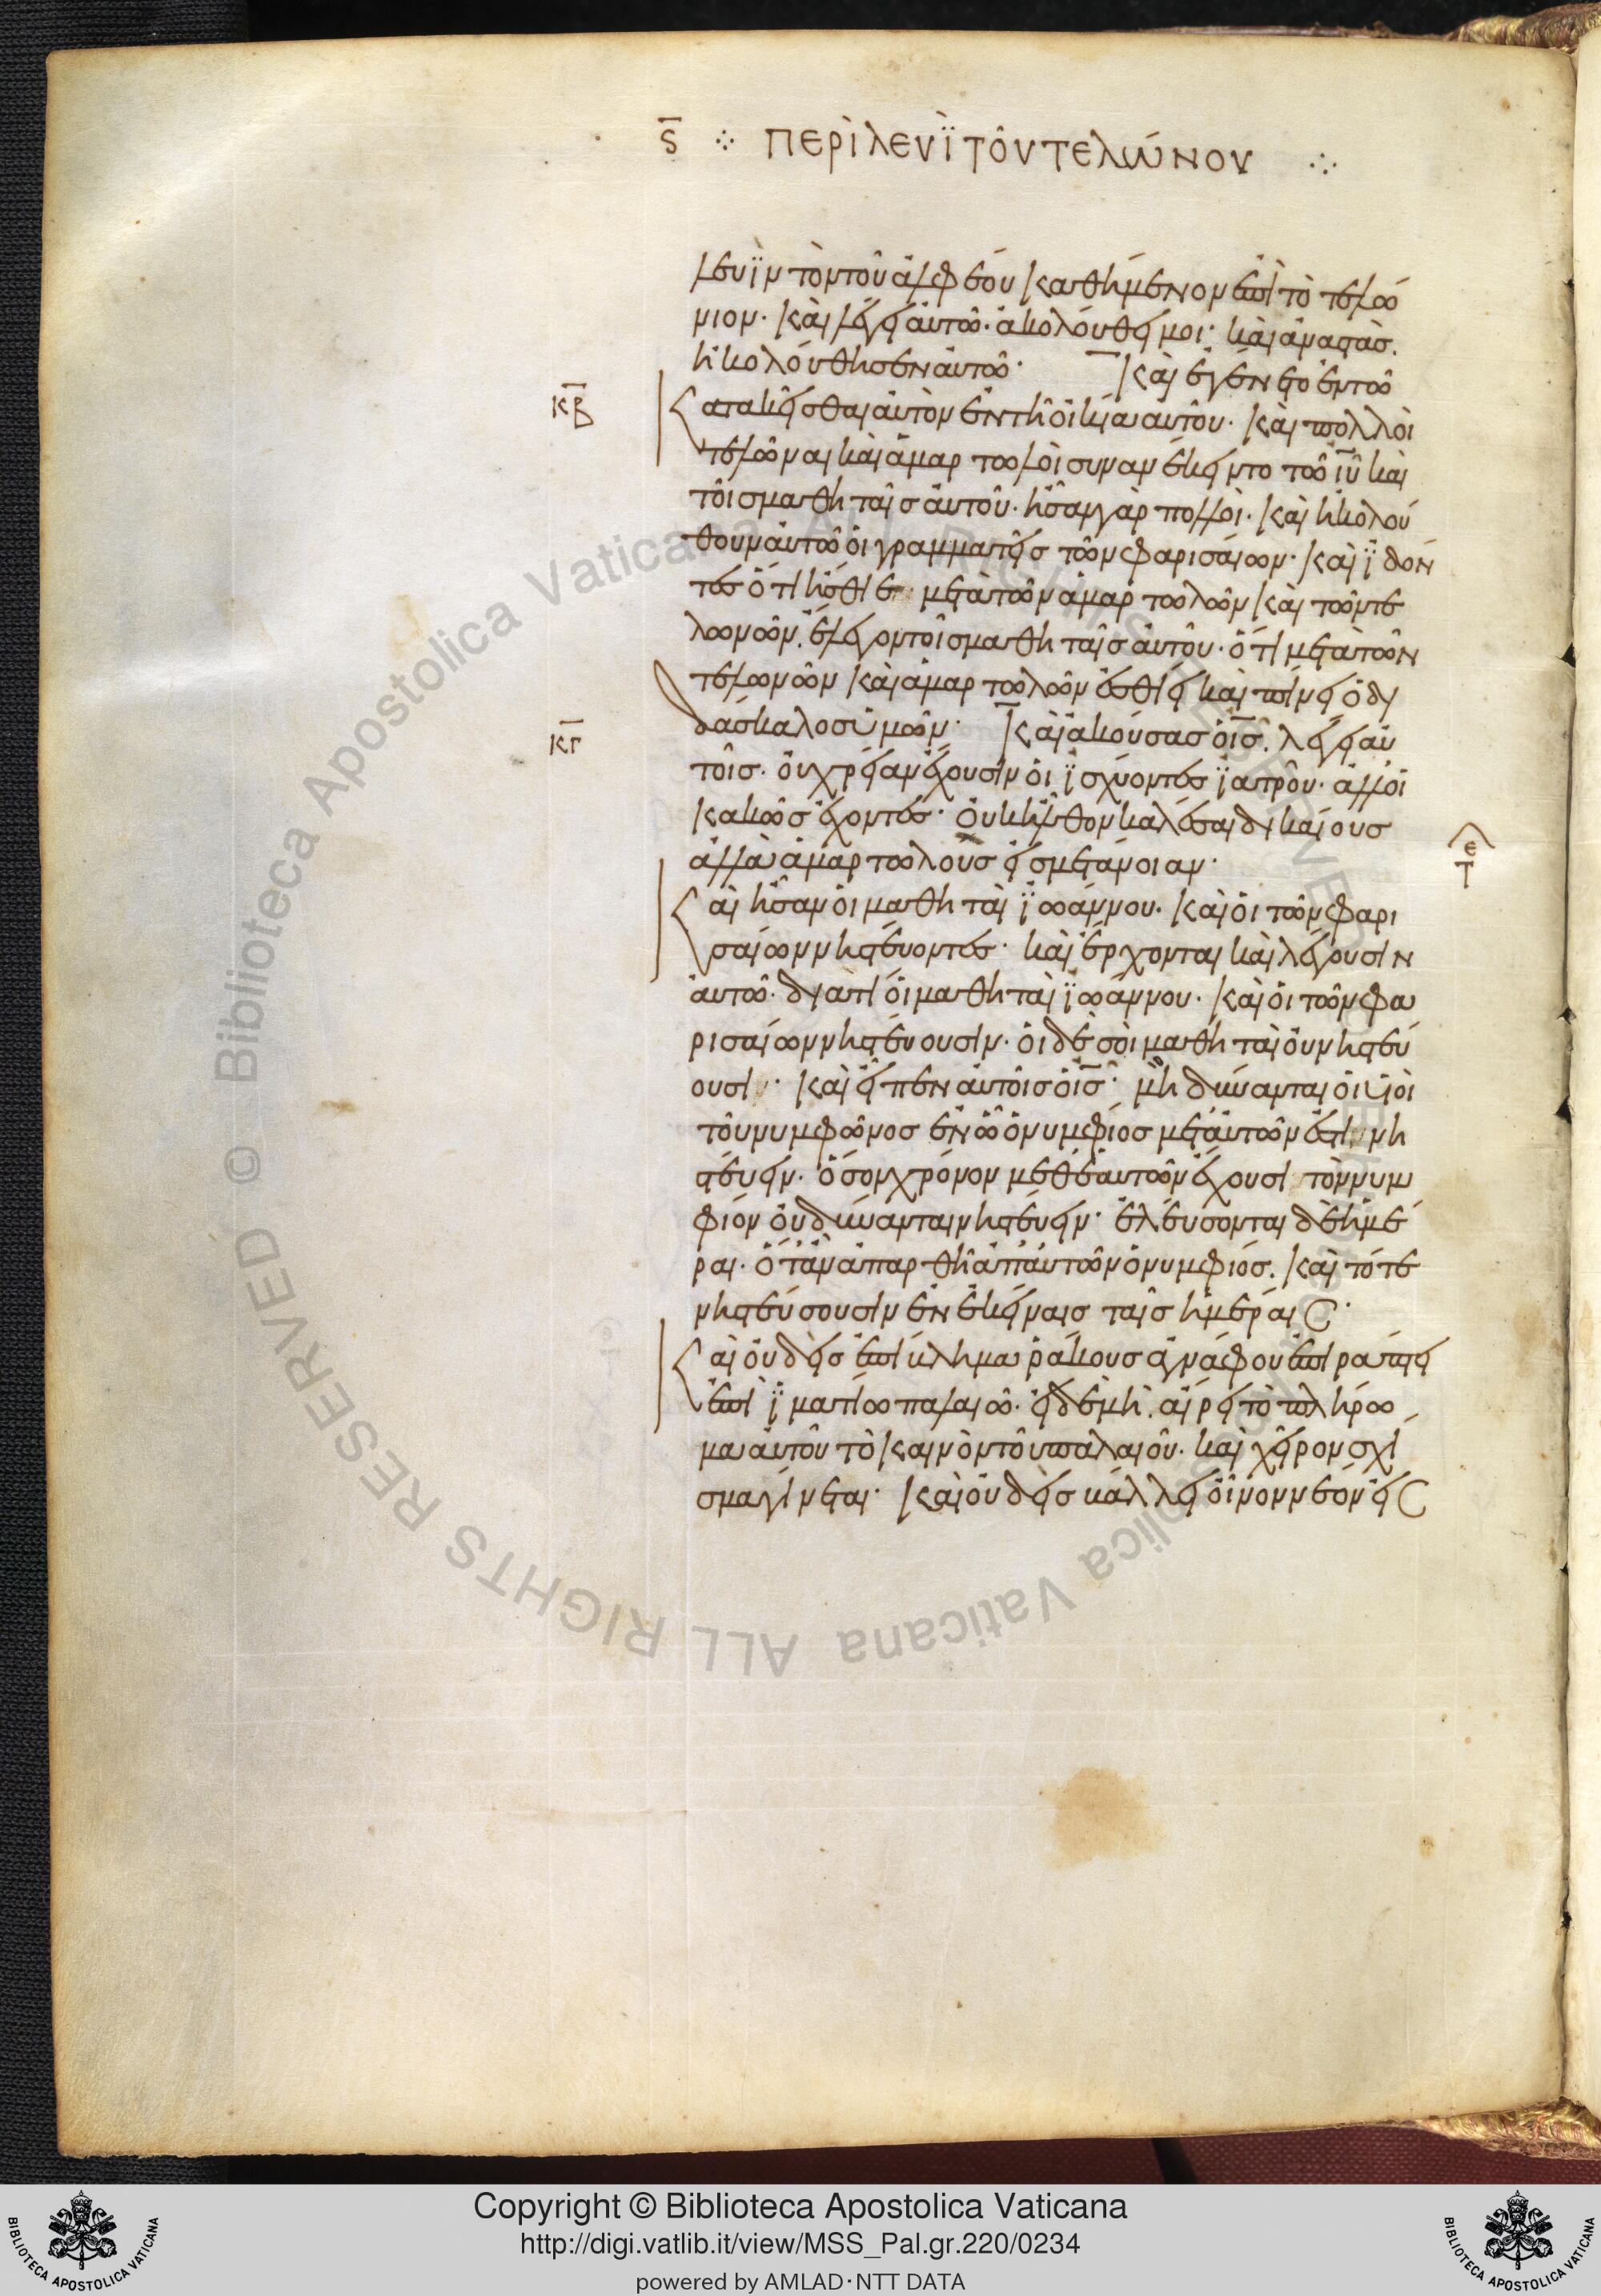 ϛ ⁘ περὶ λευῒ τοῦ τελώνου ⁘
λευῒν τὸν τοῦ ἀλφέου καθήμενον ἐπὶ τὸ τελώ
νιον· καὶ λέγει αὐτῶ· ἀκολούθει μοι· καὶ ἀναστὰσ.
ἠκολούθησεν αὐτῶ· καὶ ἐγένετο ἐν τῶ
κβ κατακεῖσθαι αὐτὸν ἐν τῆ οἰκία αὐτοῦ· καὶ πολλοὶ
τελῶναι καὶ ἁμαρτωλοὶ συνανέκειντο τῶ ιυ καὶ
τοῖσ μαθηταῖσ αὐτοῦ· ἦσαν γὰρ πολλοὶ· καὶ ἠκολού
θουν αὐτῶ οἱ γραμματεῖσ τῶν φαρισαίων· καὶ ϊδόν
τεσ ὅτι ἤσθιε μετὰ τῶν ἁμαρτωλῶν καὶ τῶν τε
λωνῶν. ἔλεγον τοῖσ μαθηταῖσ αὐτοῦ· ὅτι μετὰ τῶν
τελωνῶν καὶ ἁμαρτωλῶν ἐσθίει καὶ πίνει ὁ δι
κγ δάσκαλοσ ὑμῶν· καὶ ἀκούσασ ὁ ισ. λέγει αὐ
τοῖσ· οὐ χρείαν ἔχουσιν οἱ ϊσχύοντεσ ϊατροῦ· ἀλλοἱ
κακῶσ ἔχοντεσ· οὐκ ἦλθον καλέσαι δικαίουσ
ἀλλὰ ἁμαρτωλοὺσ εἰσ μετάνοιαν·
ε τ
καὶ ἦσαν οἱ μαθηταὶ ϊωάννου· καὶ οἱ τῶν φαρι
σαίων νηστεύοντεσ· καὶ ἔρχονται καὶ λέγουσιν
αὐτῶ· διατί οἱ μαθηταὶ ϊωάννου· καὶ οἱ τῶν φα
ρισαίων νηστεύουσιν· οἱ δὲ σοὶ μαθηταὶ οὐ νηστεύ
ουσι· καὶ εἶπεν αὐτοῖσ ὁ ισ· μὴ δύνανται οἱ υἱοὶ
τοῦ νυμφῶνοσ ἐν ῶ ὁ νυμφίοσ μετ' αὐτῶν ἐστι νη
στεύειν· ὅσον χρόνον μεθ' ἑαυτῶν ἔχουσι τὸν νυμ
φίον οὐ δύνανται νηστεύειν· ἐλεύσονται δὲ ἡμέ
ραι· ὅτὰν ἀπαρθῆ ἀπ' αὐτῶν ὁ νυμφίοσ. καὶ τότε
νηστεύσουσιν ἐν ἐκείναισ ταῖσ ἡμέραισ·
καὶ οὐδεὶσ ἐπίκλημα ράκουσ ἀγνάφου ἐπιράπτει
ἐπὶ ϊματίω παλαιῶ· εἰ δὲ μὴ. αἴρει τὸ πλήρω
μα αὐτοῦ τὸ καινὸν τοῦ παλαιοῦ· καὶ χεῖρον σχί
σμα γίνεται· καὶ οὐδεὶσ βάλλει οἶνον νέον εἰσ
Copyright © Biblioteca Apostolica Vaticana
http://digi.vatlib.it/view/MSS_Pal.gr.220/0234
powered by AMLAD·NTT DATA